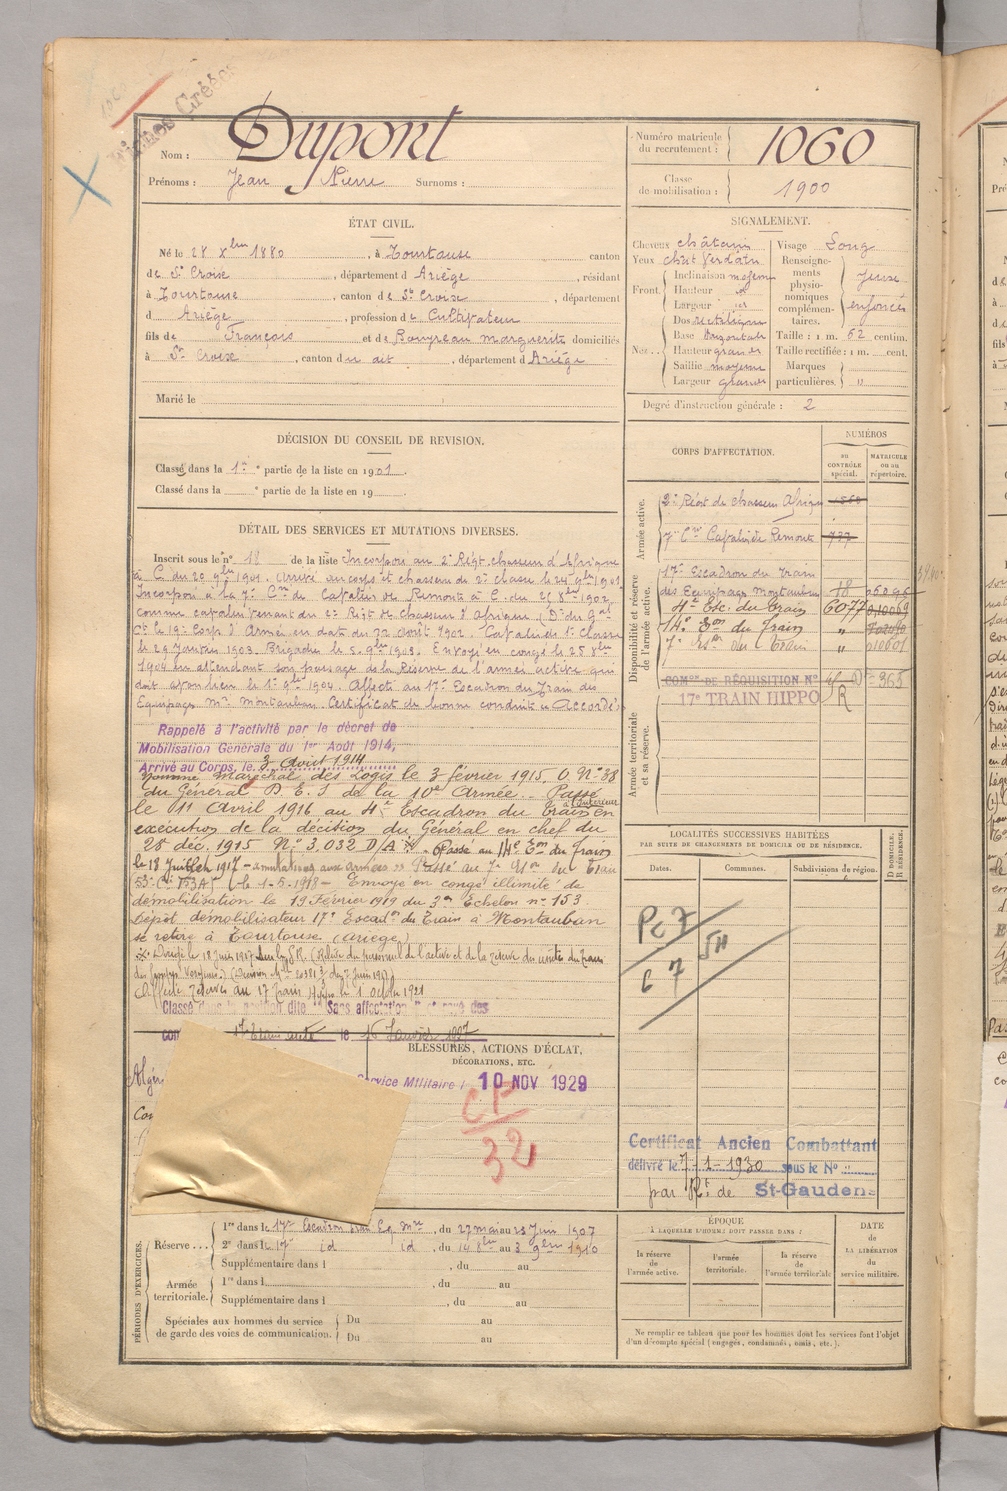 Fiches Créées
Nom : Dupont
Prénoms : Jean Pierre Surnoms :
Numéro matricule du recrutement : 1060
Classe de mobilisation : 1900
ÉTAT CIVIL.
Né le 28 Xbre 1880, à Tourtouse canton
de Ste Croix, département d Ariège, résidant
à Tourtouse, canton de Ste Croix, département
d Ariège, profession de Cultivateur
fils de François et de marguerite domiciliés
à Ste Croix, canton du dit, département d Ariège
Marié le
SIGNALEMENT.
Cheveux châtain
Yeux chât Verdatre
Front. Inclinaison moyenne
Hauteur id
Largeur id
Nez. Dos rectiligne
Base horizontale
Hauteur grande
Saillie moyenne
Largeur grande
Visage Long
Renseignements physionomiques complémentaires. Yeux enfoncés
Taille : 1 m. 62 centim.
Taille rectifiée : 1 m. cent.
Marques particulières. "
Degré d'instruction générale : 2
DÉCISION DU CONSEIL DE REVISION.
Classé dans la 1re partie de la liste en 1901.
Classé dans la e partie de la liste en 19
DÉTAIL DES SERVICES ET MUTATIONS DIVERSES.
Inscrit sous le n° 18 de la liste Incorporé au 2e Régt chasseur d'Afrique
à C. du 20 9bre 1901. Arrivé au corps et chasseur de 2e classe le 24 9bre 1901
Incorporé à la 7e Cie de Cavalier de Remonte à C. du 25 8bre 1902
comme cavalier venant du 2e Régt de chasseur d'Afrique (D. du Gal
Ct le 19e Corp d'Armée en date du 22 Août 1902. Cavalier de 1e Classe
le 29 Janvier 1903. Brigadier le 5 9bre 1903. Envoyé en congé le 25 8bre
1904 en attendant son passage de la Réserve de l'armée active qui
doit avoir lieu le 1er 9bre 1904. Affecté au 17e Escadron du Train des
Equipages Mre Montauban. Certificat de bonne conduite "Accordé"
Rappelé à l'activité par le décret de
Mobilisation Générale du 1er Août 1914,
Arrivé au Corps, le 3 Août 1914
Nommé Maréchal des Logis le 3 février 1915. O. N° 38
du Général D. E. S de la 10e Armée. Passé
le 11 Avril 1916 au 4e Escadron du Train en
à l'Intérieur
exécution de la décision du Général en chef du
28 déc. 1915 N° 3.032 D/A. Passé au 14e Eon du Train
le 18 Juillet 1917 - annotations aux armées » Passé au 7e Eson du Train
le 1-5-1918 - Envoyé en congé illimité de
démobilisation le 19 Février 1919 du 3me Echelon n° 153
Dépôt démobilisateur 17e Escadon du Train à Montauban
se retire à Tourtouse (Ariège)
Affecté réserves au 17 Train Hippo le 1 octobre 1921
Classé dans la position dite "Sans affectation" et rayé des
le 15 Janvier 1927
BLESSURES, ACTIONS D'ÉCLAT,
DÉCORATIONS, ETC.
Service Militaire 10 NOV 1929
CP
32
CORPS D'AFFECTATION.
NUMÉROS
au CONTRÔLE spécial.
MATRICULE ou au répertoire.
Armée active.
2e Régt de chasseur Afrique
7me Cie Cavalier de Remonte 737
Disponibilité et réserve de l'armée active.
17e Escadron du Train
des Equipages Montauban 18
4e Esc. du Train 6077
14e Eon du Train "
7e Eson du Train "
Armée territoriale et sa réserve.
COMon DE RÉQUISITION N°
17e TRAIN HIPPO R
LOCALITÉS SUCCESSIVES HABITÉES
PAR SUITE DE CHANGEMENTS DE DOMICILE OU DE RÉSIDENCE.
Dates. Communes. Subdivisions de région.
D DOMICILE. R RÉSIDENCE.
Pc 7
SH
C 7
Certificat Ancien Combattant
délivré le 7-1-1930 sous le N°
par Rt de St-Gaudens
PÉRIODES D'EXERCICES.
Réserve... 1re dans le 17e Escadron Train Eq. Mre, du 27 mai au 23 Juin 1907
2e dans l 17 id id, du 14 8bre au 3 9bre 1910
Supplémentaire dans l , du au
Armée territoriale. 1re dans l , du au
Supplémentaire dans l , du au
Spéciales aux hommes du service de garde des voies de communication. Du au
Du au
ÉPOQUE
À LAQUELLE L'HOMME DOIT PASSER DANS :
la réserve de l'armée active.
l'armée territoriale.
la réserve de l'armée territoriale
DATE de LA LIBÉRATION du service militaire.
Ne remplir ce tableau que pour les hommes dont les services font l'objet
d'un décompte spécial (engagés, condamnés, omis, etc.).